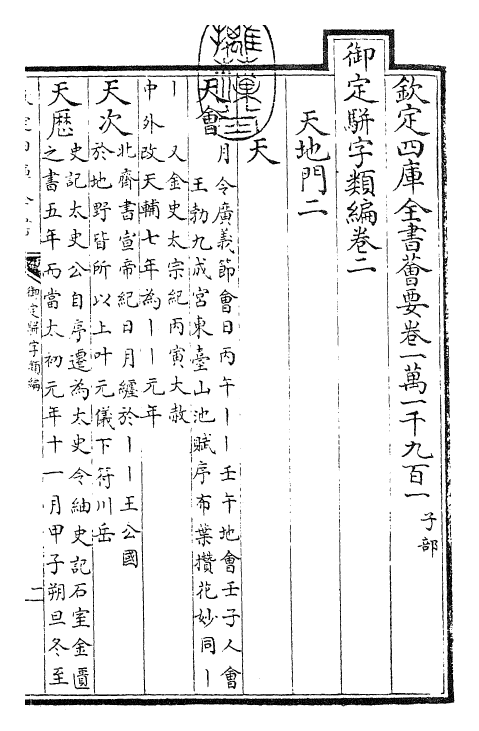 欽定四庫全書薈要卷一萬一千九百一 子部
御定駢字類編卷二
天地門二
天
天會 月令廣義節會日丙午丨丨壬午地會壬子人會
王勃九成宮東臺山池賦序布葉攢花妙同丨
丨 又金史太宗紀丙寅大赦
中外改天輔七年為丨丨元年
天次 北齊書宣帝紀日月纏於丨丨王公國
於地野皆所以上叶元儀下符川岳
天歴 史記太史公自序遷為太史令紬史記石室金匱
之書五年而當太初元年十一月甲子朔旦冬至
御定駢字類編
二